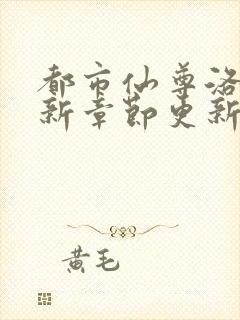 都市仙尊洛
新章节更新
黄毛